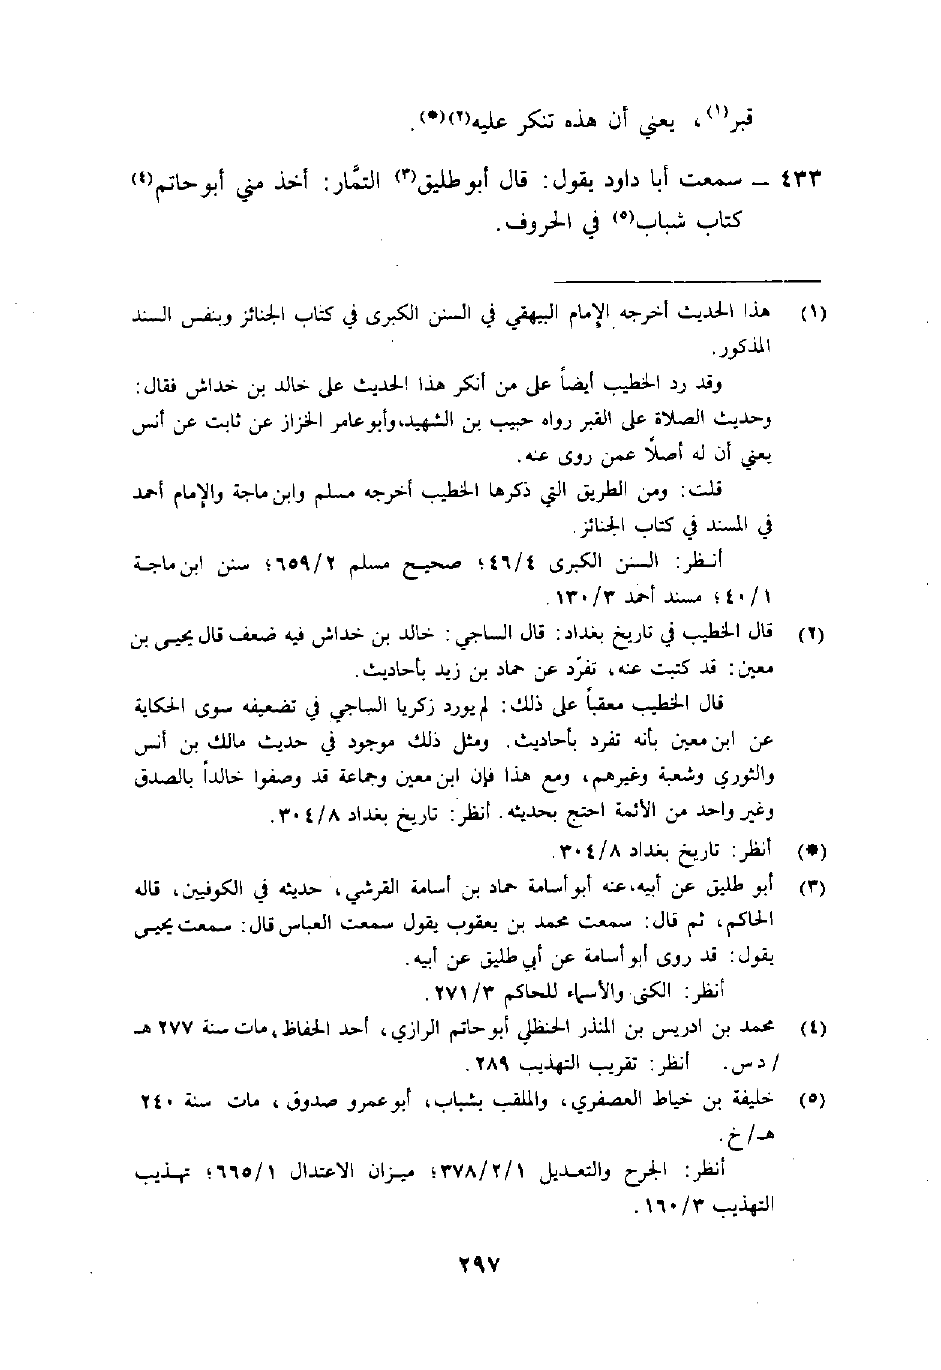 قبر(١)، يعني أن هذه تنكر عليه(٢)(*).
٤٣٣ ـ سمعت أبا داود يقول: قال أبو طليق(٣) التمَّار: أخذ مني أبو حاتم(٤)
كتاب شباب(٥) في الحروف.
(١) هذا الحديث أخرجه الإمام البيهقي في السنن الكبرى في كتاب الجنائز وبنفس السند
المذكور.
وقد رد الخطيب أيضاً على من أنكر هذا الحديث على خالد بن خداش فقال:
وحديث الصلاة على القبر رواه حبيب بن الشهيد، وأبو عامر الخزاز عن ثابت عن أنس
يعني أن له أصلاً عمن روى عنه.
قلت: ومن الطريق التي ذكرها الخطيب أخرجه مسلم وابن ماجة والإمام أحمد
في المسند في كتاب الجنائز.
أنظر: السنن الكبرى ٤٦/٤؛ صحيح مسلم ٦٥٩/٢؛ سنن ابن ماجة
٤٠/١؛ مسند أحمد ١٣٠/٣.
(٢) قال الخطيب في تاريخ بغداد: قال الساجي: خالد بن خداش فيه ضعف قال يحيى بن
معين: قد كتبت عنه، تفرّد عن حماد بن زيد بأحاديث.
قال الخطيب معقباً على ذلك: لم يورد زكريا الساجي في تضعيفه سوى الحكاية
عن ابن معين بأنه تفرد بأحاديث. ومثل ذلك موجود في حديث مالك بن أنس
والثوري وشعبة وغيرهم، ومع هذا فإن ابن معين وجماعة قد وصفوا خالداً بالصدق
وغير واحد من الأئمة احتج بحديثه. أنظر: تاريخ بغداد ٣٠٤/٨.
(*) أنظر: تاريخ بغداد ٣٠٤/٨.
(٣) أبو طليق عن أبيه، عنه أبو أسامة حماد بن أسامة القرشي، حديثه في الكوفيين، قاله
الحاكم، ثم قال: سمعت محمد بن يعقوب يقول سمعت العباس قال: سمعت يحيى
يقول: قد روى أبو أسامة عن أبي طليق عن أبيه.
أنظر: الكنى والأسماء للحاكم ٢٧١/٣.
(٤) محمد بن ادريس بن المنذر الحنظلي أبو حاتم الرازي، أحد الحفاظ، مات سنة ٢٧٧ هـ
/ د س. أنظر: تقريب التهذيب ٢٨٩.
(٥) خليفة بن خياط العصفري، والملقب بشباب، أبو عمرو صدوق، مات سنة ٢٤٠
هـ/ خ.
أنظر: الجرح والتعديل ٣٧٨/٢/١؛ ميزان الاعتدال ٦٦٥/١؛ تهذيب
التهذيب ١٦٠/٣.
٢٩٧